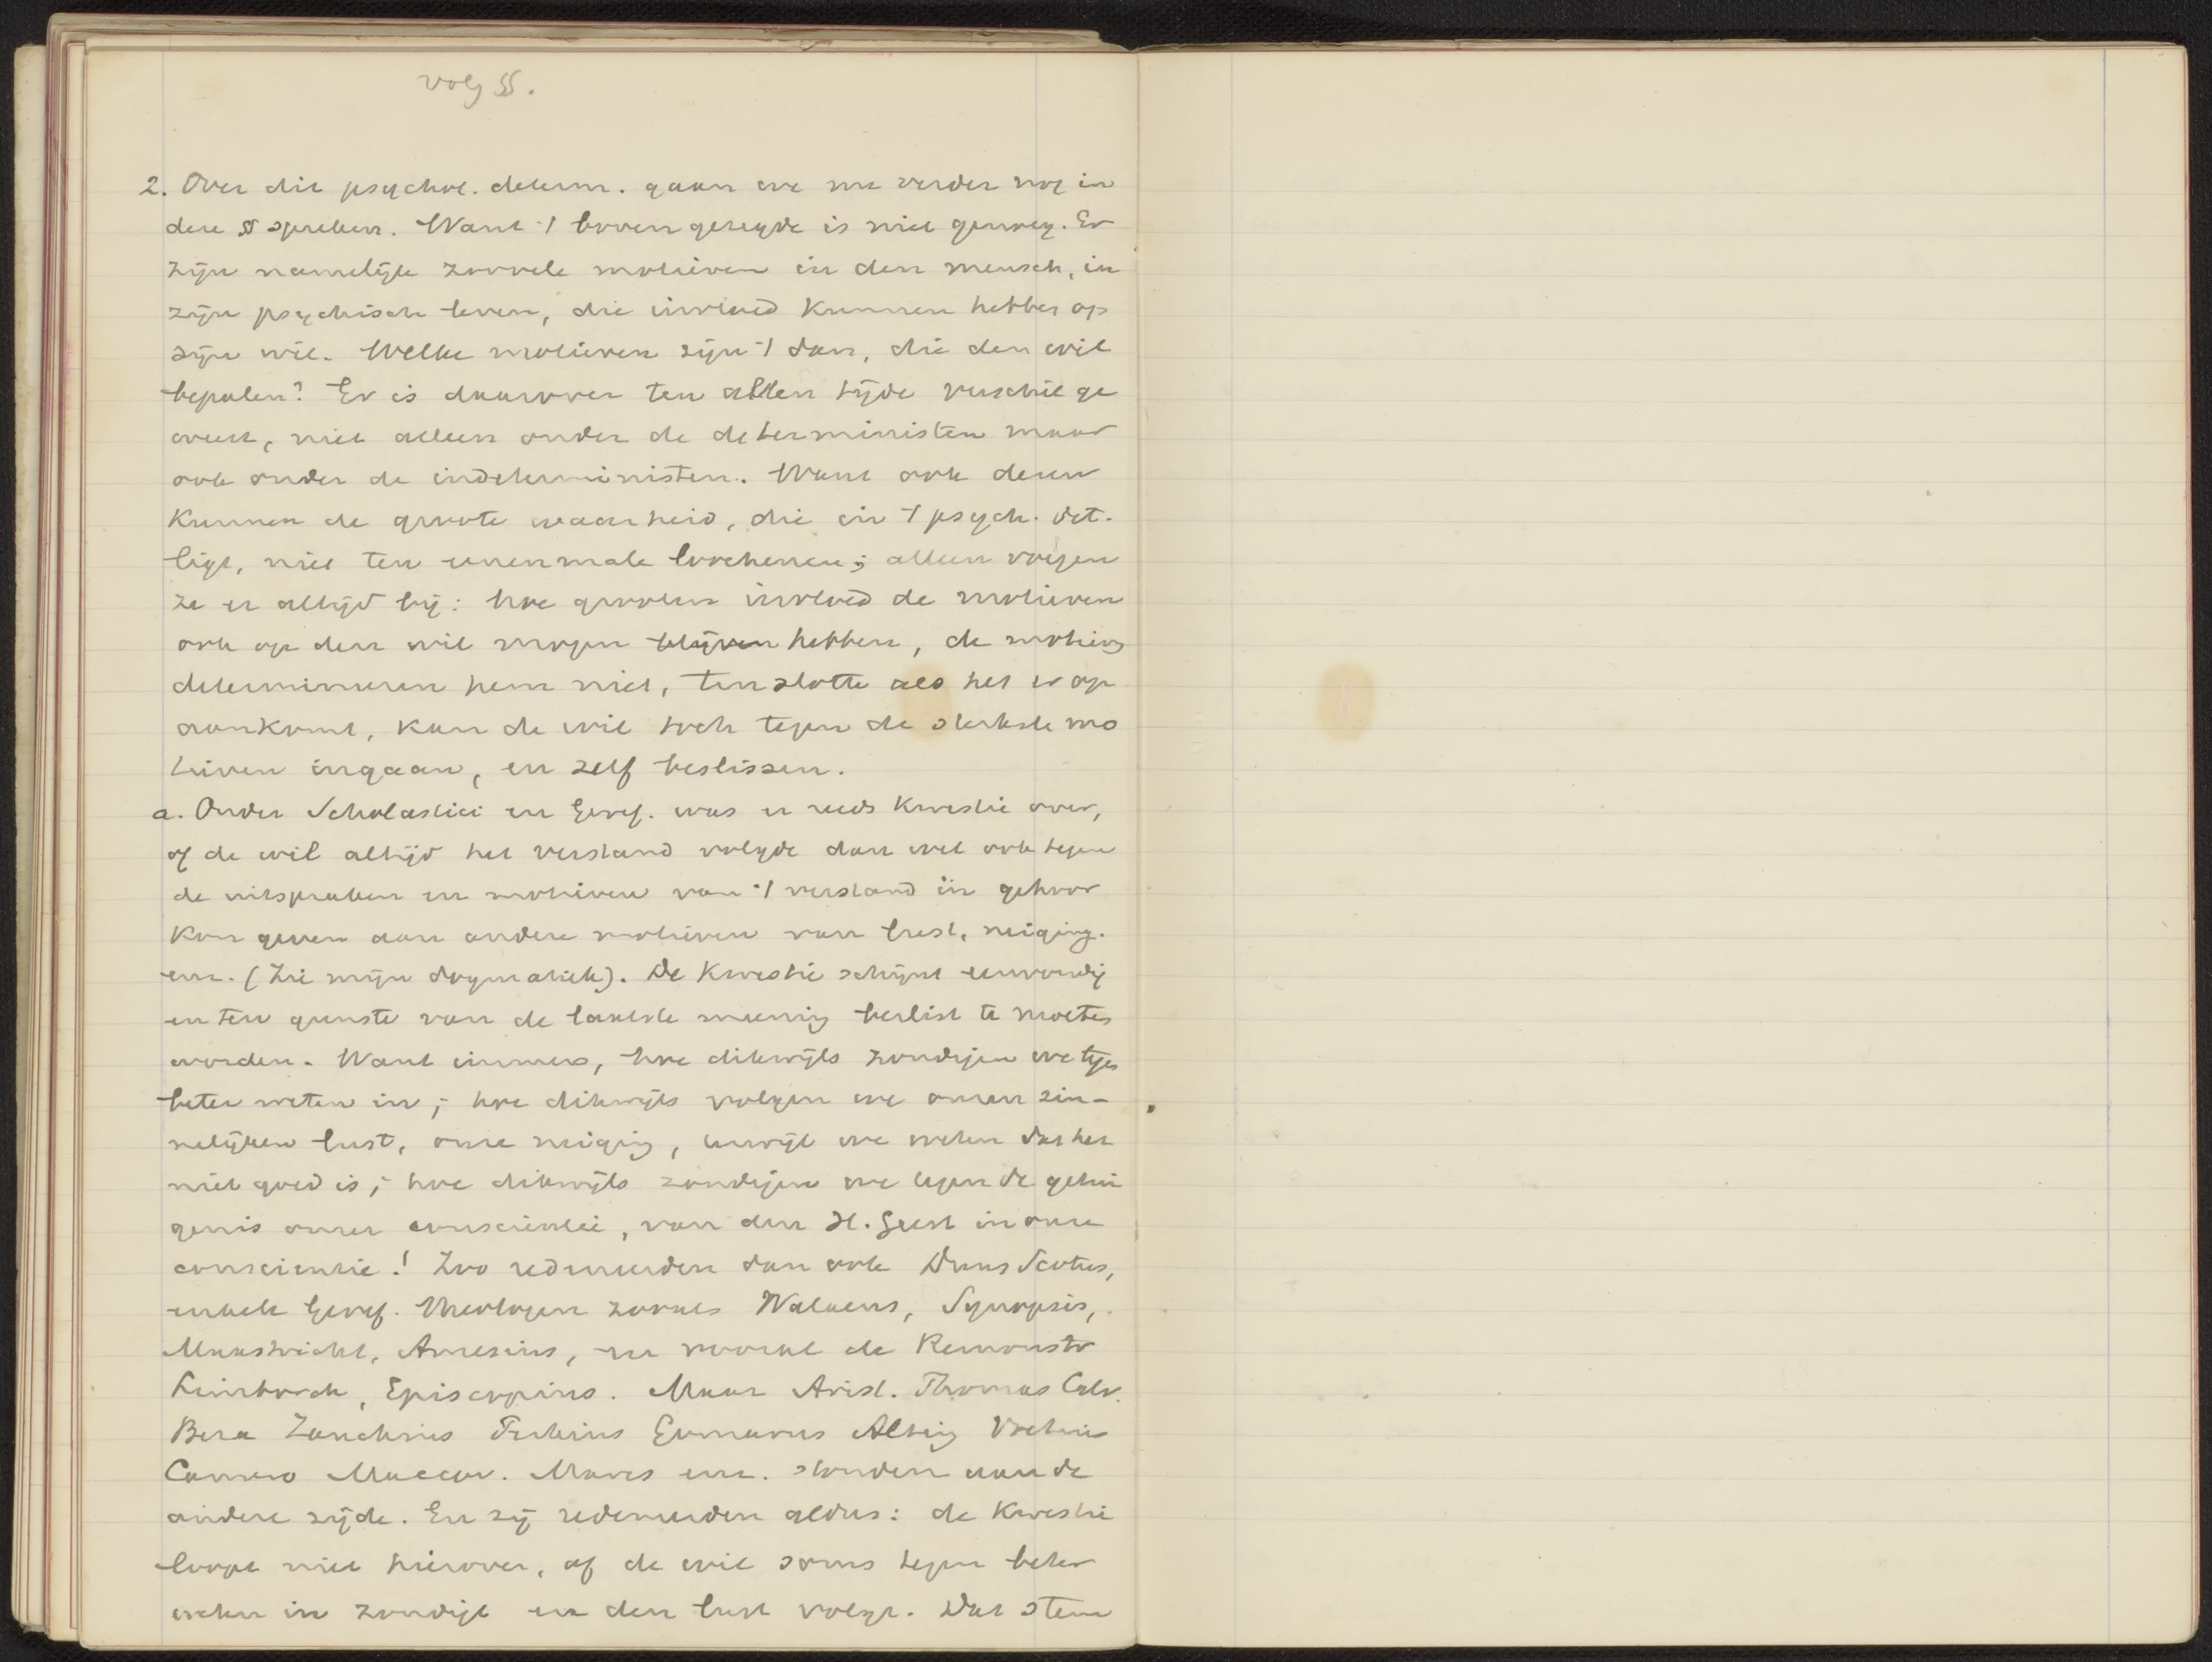 volg §§.
2. Over dit psychol. determ. gaan we nu verder nog in
deze § spreken. Want 't boven gezegde is niet genoeg. Er
zijn namelijk zoovele motieven in den mensch, in
zijn psychisch leven, die invloed kunnen hebben op
zijn wil. Welke motieven zijn 't dan, die den wil
bepalen? Er is daarover ten allen tijde verschil ge
weest, niet alleen onder de deterministen maar
ook onder de indeterministen. Want ook dezen
kunnen de groote waarheid, die in 't psych. det.
ligt, niet ten eenenmale loochenen; alleen voegen
ze er altijd bij: hoe grooten invloed de motieven
ook op den wil mogen blijven hebben, de motiev
determineeren hem niet, ten slotte als het er op
aankomt, kan de wil toch tegen de sterkste mo
tieven ingaan, en zelf beslissen.
a. Onder Scholastici en Geref. was er reeds kwestie over,
of de wil altijd het verstand volgde dan wel ook tegen
de uitspraken en motieven van 't verstand in gehoor
kon geven aan andere motieven van lust, neiging.
enz. (Zie mijn Dogmatiek). De kwestie schijnt eenvoudig
en ten gunste van de laatste meening beslist te moeten
worden. Want immers, hoe dikwijls zondigen we tegen
beter weten in; hoe dikwijls volgen we onzen zin-
nelijken lust, onze neiging, terwijl we weten dat het
niet goed is; hoe dikwijls zondigen we tegen de getui
genis onzer conscientie, van den H. Geest in onze
conscientie! Zoo redeneerden dan ook Duns Scotus,
enkele Geref. theologen zooals Walaeus, Synopsis,
Maastricht, Amesius, en vooral de Remonstr
Limborch, Episcopius. Maar Arist. Thomas Calv.
Beza Zanchius Trelcius Gomarus Alting Voetius
Camero Maccov. Mares enz. stonden aan de
andere zijde. En zij redeneerden aldus: de kwestie
loopt niet hierover, of de wil soms tegen beter
weten in zondigt en den lust volgt. Dat stem